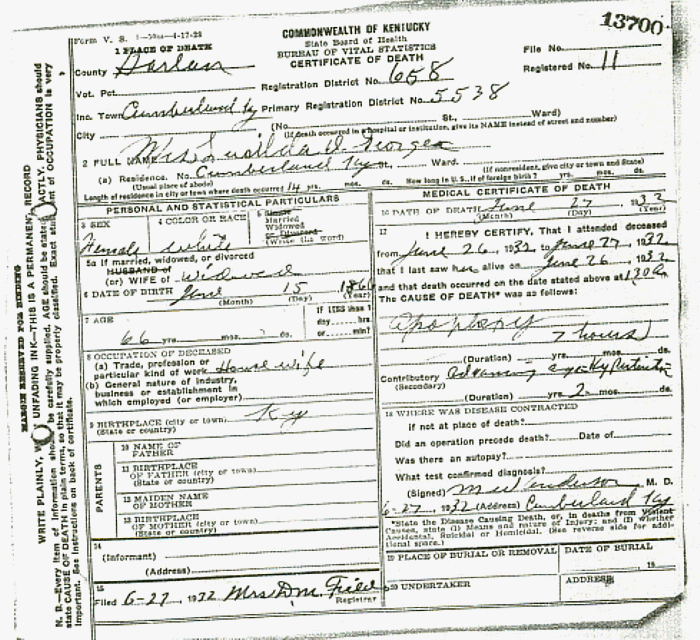 13700
Form V. S. 1-50m-4-17-28
COMMONWEALTH OF KENTUCKY
State Board of Health
BUREAU OF VITAL STATISTICS
CERTIFICATE OF DEATH
1 PLACE OF DEATH
County Harlan
File No.
Registered No. 11
Vot. Pct.
Registration District No. 658
Inc. Town Cumberland Ky Primary Registration District No. 5538
City (No. St., Ward)
(If death occurred in a hospital or institution, give its NAME instead of street and number)
2 FULL NAME Mrs George
(a) Residence. No. Cumberland Ky St., Ward.
(Usual place of abode) (If nonresident, give city or town and State)
Length of residence in city or town where death occurred 14 yrs. mos. ds. How long in U. S., if of foreign birth? yrs. mos. ds.
PERSONAL AND STATISTICAL PARTICULARS
3 SEX
Female
4 COLOR OR RACE
White
5 Single
Married
Widowed
or Divorced
(Write the word)
5a If married, widowed, or divorced
HUSBAND of
(or) WIFE of Widowed
6 DATE OF BIRTH June 15 1866
(Month) (Day) (Year)
7 AGE
66 yrs. mos. ds.
IF LESS than
day hrs.
or min?
8 OCCUPATION OF DECEASED
(a) Trade, profession or
particular kind of work House wife
(b) General nature of industry,
business or establishment in
which employed (or employer)
9 BIRTHPLACE (city or town) Ky
(State or country)
PARENTS
10 NAME OF
FATHER
11 BIRTHPLACE
OF FATHER (city or town)
(State or country)
12 MAIDEN NAME
OF MOTHER
13 BIRTHPLACE
OF MOTHER (city or town)
(State or country)
14
(Informant)
(Address)
15
Filed 6-27, 1932 Mrs D.M. Field
Registrar
MEDICAL CERTIFICATE OF DEATH
16 DATE OF DEATH June 27 1932
(Month) (Day) (Year)
17
I HEREBY CERTIFY, That I attended deceased
from June 26, 1932 to June 27, 1932
that I last saw her alive on June 26, 1932
and that death occurred on the date stated above at 130 a
The CAUSE OF DEATH* was as follows:
Apoplexy
7 hours
(Duration) yrs. mos. ds.
Contributory
(Secondary)
(Duration) yrs. 2 mos. ds.
18 WHERE WAS DISEASE CONTRACTED
if not at place of death?
Did an operation precede death? Date of
Was there an autopsy?
What test confirmed diagnosis?
(Signed) M. D.
6-27, 1932 (Address) Cumberland Ky
*State the Disease Causing Death, or, in deaths from Violent
Causes, state (1) Means and nature of Injury; and (2) whether
Accidental, Suicidal or Homicidal. (See reverse side for addi-
tional space.)
19 PLACE OF BURIAL OR REMOVAL
DATE OF BURIAL
19
20 UNDERTAKER
ADDRESS
MARGIN RESERVED FOR BINDING
WRITE PLAINLY, UNFADING INK—THIS IS A PERMANENT RECORD
N. B.—Every item of information should be carefully supplied. AGE should be stated EXACTLY. PHYSICIANS should
state CAUSE OF DEATH in plain terms, so that it may be properly classified. Exact statement of OCCUPATION is very
important. See instructions on back of certificate.